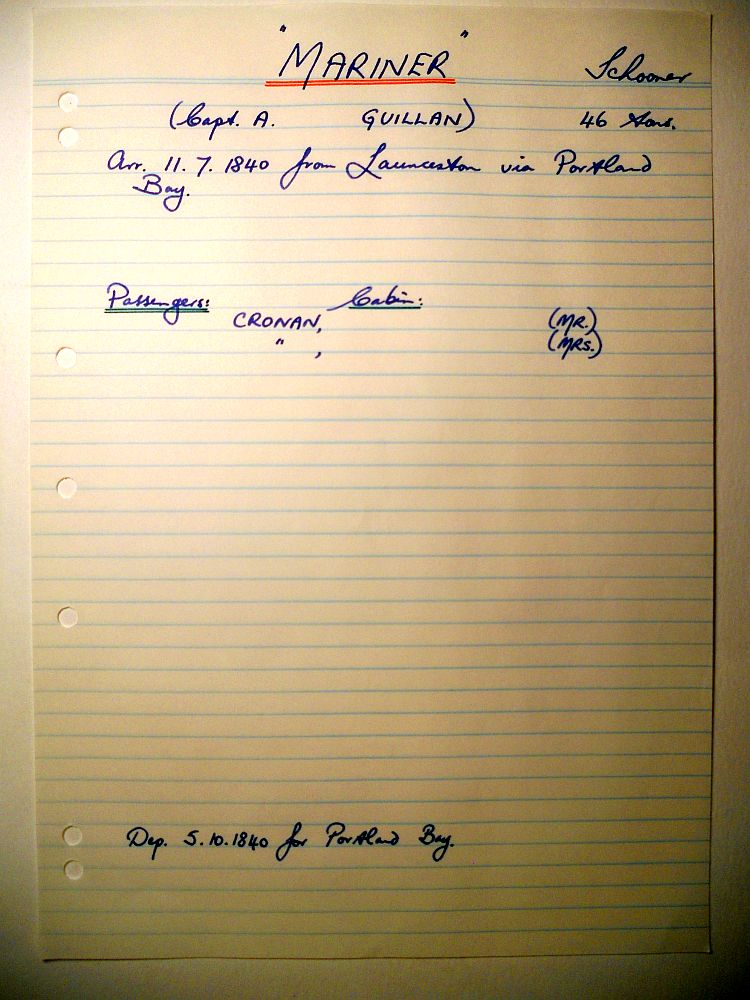 "MARINER" Schooner
(Capt. A. GUILLAN) 46 tons.
Arr. 11. 7. 1840 from Launceston via Portland
Bay.
Passengers: Cabin:
CRONAN, (MR.)
" , (MRS.)
Dep. 5.10.1840 for Portland Bay.